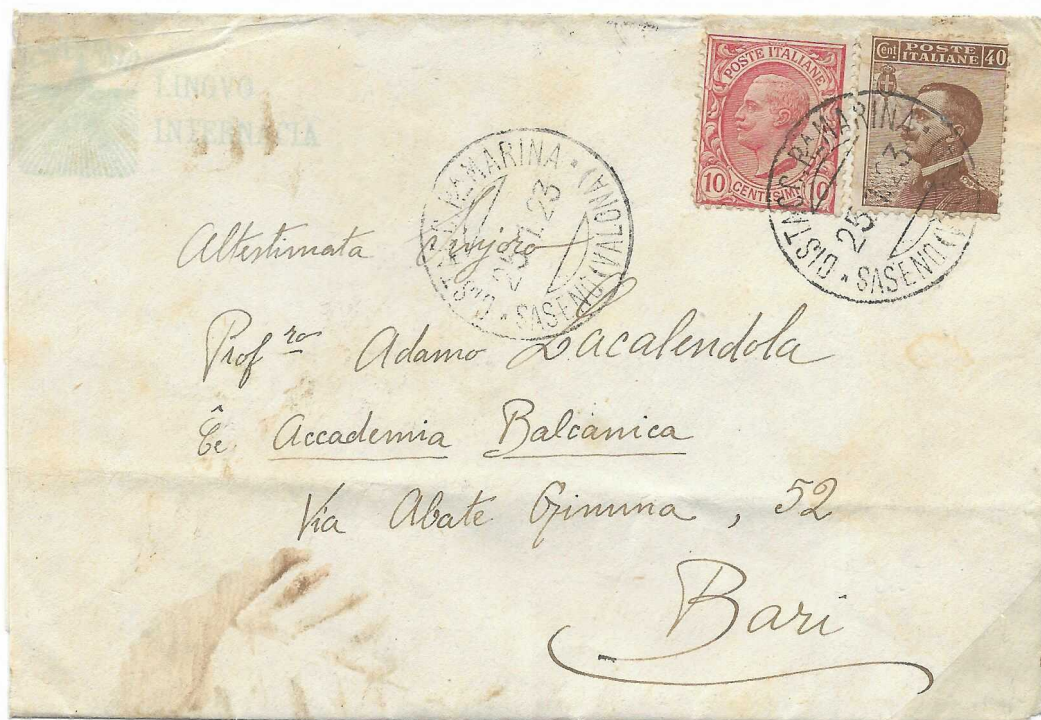 LINGVO
INTERNACIA
POSTE ITALIANE
10 CENTESIMI
Cent. POSTE ITALIANE 40
RAMARINA • SASENO (VALONA)
25 23
RAMARINA • SASENO
25 23
Altestimata Sinjoro
Prof.ro Adamo Lacalendola
Ĉe Accademia Balcanica
Via Abate Gimma, 52
Bari